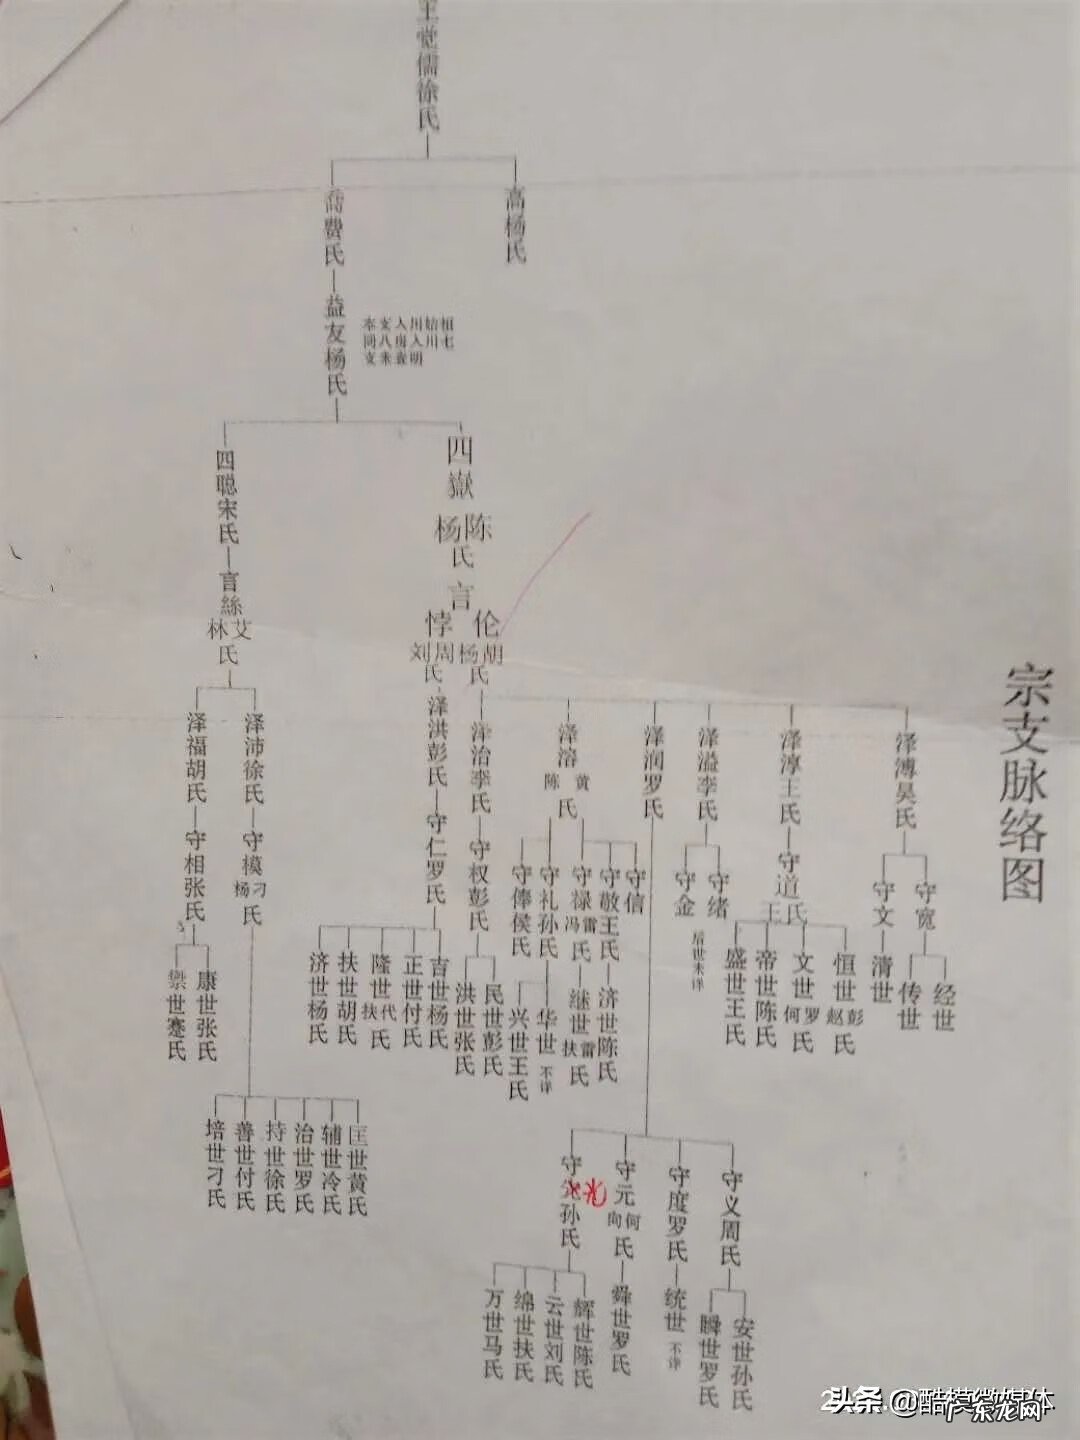 宗支脉络图
王堂儒徐氏
高杨氏
斋费氏
益友杨氏
四嶽
杨陈
氏
四聪宋氏
言
悖 伦
刘周 杨胡
氏 氏
言絲
林艾
氏
泽溥吴氏
泽淳王氏
泽溢李氏
泽润罗氏
泽溶
陈 黄
氏
泽治李氏
泽洪彭氏
泽沛徐氏
泽福胡氏
守宽
守文
守道
王氏
守绪
守金
后世未详
守信
守敬王氏
守禄
冯雷
氏
守礼孙氏
守俸侯氏
守权彭氏
守仁罗氏
守模
杨刁
氏
守相张氏
经世
传世
清世
恒世
赵彭
氏
文世
何罗
氏
帝世陈氏
盛世王氏
济世陈氏
继世
扶雷
氏
华世
不详
兴世王氏
民世彭氏
洪世张氏
吉世杨氏
正世付氏
隆世
扶代
氏
扶世胡氏
济世杨氏
康世张氏
世蹇氏
匡世黄氏
辅世冷氏
治世罗氏
持世徐氏
善世付氏
培世刁氏
守义周氏
守度罗氏
守元
向何
氏
守光孙氏
安世孙氏
瞬世罗氏
统世
不详
舜世罗氏
辉世陈氏
云世刘氏
绵世扶氏
万世马氏
头条 @酷模微媒体
广东龙网